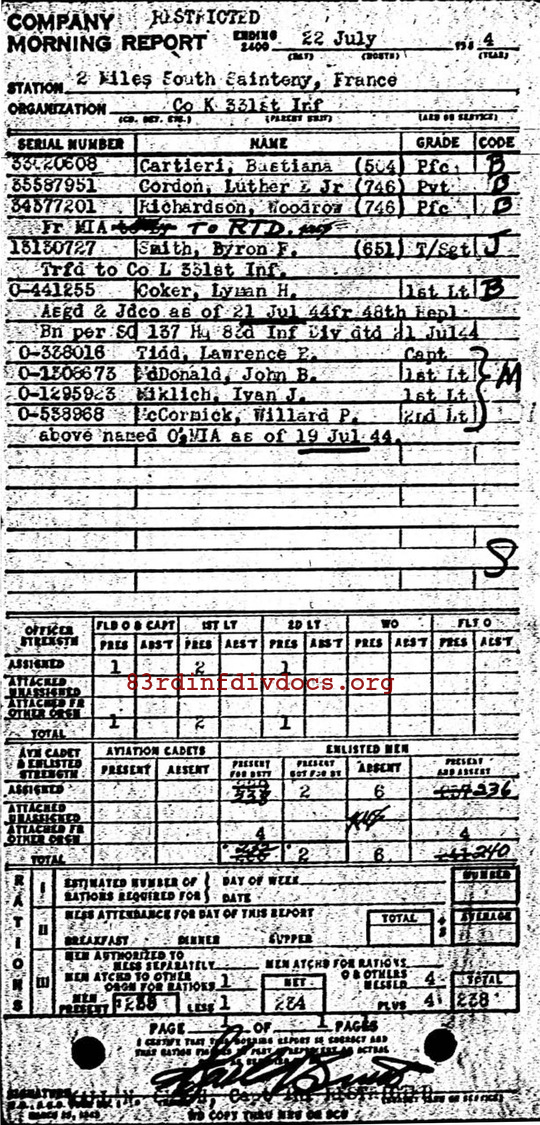 RESTRICTED
COMPANY
MORNING REPORT ENDING 2400 22 July 4
(DAY) (MONTH) (YEAR)
STATION 2 Miles South Sainteny, France
ORGANIZATION Co K 331st Inf
(CO. DET. ETC.) (PARENT UNIT) (ARM OR SERVICE)
SERIAL NUMBER NAME GRADE CODE
Cartieri, Bastiana (504) Pfc B
35587951 Gordon, Luther E Jr (746) Pvt B
34577201 Richardson, Woodrow (746) Pfc B
Fr MIA TO RTD.
13130727 Smith, Byron F. (651) T/Sgt J
Trfd to Co L 331st Inf.
O-441255 Coker, Lyman H. 1st Lt B
Asgd & Jdco as of 21 Jul 44fr 48th Repl
Bn per SO 137 Hq 83d Inf Div dtd 21 Jul44
O-338016 Tidd, Lawrence E. Capt
McDonald, John B. 1st Lt M
Miklich, Ivan J. 1st Lt
O-538968 McCormick, Willard P. 2nd Lt
above named O's MIA as of 19 Jul 44.
8
OFFICER STRENGTH FLD O & CAPT 1ST LT 2D LT WO FLT O
PRES ABS'T PRES ABS'T PRES ABS'T PRES ABS'T PRES ABS'T
ASSIGNED 1 2 1
83rdinfdivdocs.org
ATTACHED UNASSIGNED
ATTACHED FR OTHER ORGN
TOTAL 1 2 1
AVN CADET & ENLISTED STRENGTH AVIATION CADETS ENLISTED MEN
PRESENT ABSENT PRESENT FOR DUTY PRESENT NOT FOR DY ABSENT PRESENT AND ABSENT
ASSIGNED 2 6 236
ATTACHED UNASSIGNED
ATTACHED FR OTHER ORGN 4 4
TOTAL 2 6 240
RATIONS
I ESTIMATED NUMBER OF RATIONS REQUIRED FOR DAY OF WEEK DATE NUMBER
II MESS ATTENDANCE FOR DAY OF THIS REPORT TOTAL ÷ 3 AVERAGE
BREAKFAST DINNER SUPPER
III MEN AUTHORIZED TO MESS SEPARATELY MEN ATCHD FOR RATIONS
MEN ATCHD TO OTHER ORGN FOR RATIONS 1 NET O & OTHERS MESSED 4 TOTAL
MEN PRESENT LESS 1 234 PLUS 4 238
PAGE 1 OF 1 PAGES
I CERTIFY THAT THIS MORNING REPORT IS CORRECT AND
SIGNATURE
MARCH